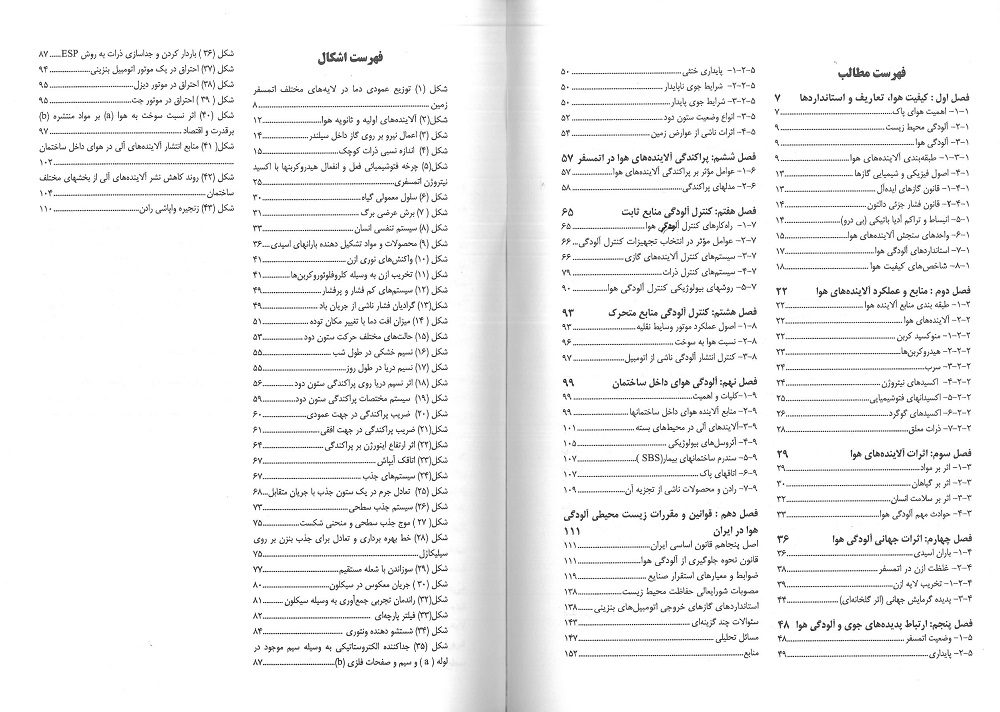 فهرست مطالب
فصل اول : کیفیت هوا، تعاریف و استانداردها ۷
۱-۱- اهمیت هوای پاک ۷
۲-۱- آلودگی محیط زیست ۹
۳-۱- آلودگی هوا ۹
۱-۳-۱- طبقه‌بندی آلاینده‌های هوا ۹
۴-۱- اصول فیزیکی و شیمیایی گازها ۱۳
۱-۴-۱- قانون گازهای ایده‌آل ۱۳
۲-۴-۱- قانون فشار جزئی دالتون ۱۴
۵-۱- انبساط و تراکم آدیا باتیکی (بی دررو) ۱۴
۶-۱- واحدهای سنجش آلاینده‌های هوا ۱۵
۷-۱- استانداردهای آلودگی هوا ۱۷
۸-۱- شاخص‌های کیفیت هوا ۱۸
فصل دوم : منابع و عملکرد آلاینده‌های هوا ۲۲
۱-۲- طبقه بندی منابع آلاینده هوا ۲۲
۲-۲- آلاینده‌های هوا ۲۲
۱-۲-۲- منوکسید کربن ۲۲
۲-۲-۲- هیدروکربن‌ها ۲۳
۳-۲-۲- سرب ۲۴
۴-۲-۲- اکسیدهای نیتروژن ۲۴
۵-۲-۲- اکسیدانهای فتوشیمیایی ۲۵
۶-۲-۲- اکسیدهای گوگرد ۲۶
۷-۲-۲- ذرات معلق ۲۸
فصل سوم: اثرات آلاینده‌های هوا ۲۹
۱-۳- اثر بر مواد ۲۹
۲-۳- اثر بر گیاهان ۳۰
۳-۳- اثر بر سلامت انسان ۳۲
۴-۳- حوادث مهم آلودگی هوا ۳۳
فصل چهارم: اثرات جهانی آلودگی هوا ۳۶
۱-۴- باران اسیدی ۳۶
۲-۴- غلظت ازن در اتمسفر ۳۸
۱-۲-۴- تخریب لایه ازن ۳۹
۳-۴- پدیده گرمایش جهانی (اثر گلخانه‌ای) ۴۴
فصل پنجم: ارتباط پدیده‌های جوی و آلودگی هوا ۴۸
۱-۵- وضعیت اتمسفر ۴۸
۲-۵- پایداری ۴۹
۱-۲-۵- پایداری خنثی ۵۰
۲-۲-۵- شرایط جوی ناپایدار ۵۰
۳-۲-۵- شرایط جوی پایدار ۵۰
۳-۵- انواع وضعیت ستون دود ۵۲
۴-۵- اثرات ناشی از عوارض زمین ۵۴
فصل ششم: پراکندگی آلاینده‌های هوا در اتمسفر ۵۷
۱-۶- عوامل مؤثر بر پراکندگی آلاینده‌های هوا ۵۷
۲-۶- مدلهای پراکندگی ۵۸
فصل هفتم: کنترل آلودگی منابع ثابت ۶۵
۱-۷- راه‌کارهای کنترل آلودگی هوا ۶۵
۲-۷- عوامل مؤثر در انتخاب تجهیزات کنترل آلودگی ۶۶
۳-۷- سیستم‌های کنترل آلاینده‌های گازی ۶۶
۴-۷- سیستم‌های کنترل ذرات ۷۹
۵-۷- روشهای بیولوژیکی کنترل آلودگی هوا ۹۰
فصل هشتم: کنترل آلودگی منابع متحرک ۹۳
۱-۸- اصول عملکرد موتور وسایط نقلیه ۹۳
۲-۸- نسبت هوا به سوخت ۹۶
۳-۸- کنترل انتشار آلودگی ناشی از اتومبیل ۹۷
فصل نهم: آلودگی هوای داخل ساختمان ۹۹
۱-۹-کلیات و اهمیت ۹۹
۲-۹- منابع آلاینده هوای داخل ساختمانها ۹۹
۳-۹-آلاینده‌های آلی در محیط‌های بسته ۱۰۱
۴-۹- آئروسل‌های بیولوژیکی ۱۰۵
۵-۹- سندرم ساختمانهای بیمار(SBS ) ۱۰۷
۶-۹- اتاقهای پاک ۱۰۷
۷-۹- رادن و محصولات ناشی از تجزیه آن ۱۰۹
فصل دهم : قوانین و مقررات زیست محیطی آلودگی
هوا در ایران ۱۱۱
اصل پنجاهم قانون اساسی ایران ۱۱۱
قانون نحوه جلوگیری از آلودگی هوا ۱۱۱
ضوابط و معیارهای استقرار صنایع ۱۱۹
مصوبات شورایعالی حفاظت محیط زیست ۱۳۸
استانداردهای گازهای خروجی اتومبیل‌های بنزینی ۱۳۸
سئوالات چند گزینه‌ای ۱۴۳
مسائل تحلیلی ۱۴۷
منابع ۱۵۲
فهرست اشکال
شکل (۱) توزیع عمودی دما در لایه‌های مختلف اتمسفر
زمین ۸
شکل(۲) آلاینده‌های اولیه و ثانویه هوا ۱۲
شکل(۳) اعمال نیرو بر روی گاز داخل سیلندر ۱۴
شکل (۴) اندازه نسبی ذرات کوچک ۱۵
شکل(۵) چرخه فتوشیمیائی فعل و انفعال هیدروکربنها با اکسید
نیتروژن اتمسفری ۲۵
شکل (۶) سلول معمولی گیاه ۳۰
شکل (۷) برش عرضی برگ ۳۱
شکل (۸) سیستم تنفسی انسان ۳۳
شکل (۹) محصولات و مواد تشکیل دهنده بارانهای اسیدی ۳۶
شکل (۱۰) واکنش‌های نوری ازن ۴۱
شکل (۱۱) تخریب ازن به وسیله کلروفلوئوروکربن‌ها ۴۱
شکل (۱۲) سیستم‌های کم فشار و پرفشار ۴۹
شکل(۱۳) گرادیان فشار ناشی از جریان باد ۴۹
شکل (۱۴) میزان افت دما با تغییر مکان توده ۵۱
شکل (۱۵) حالت‌های مختلف حرکت ستون دود ۵۳
شکل (۱۶) نسیم خشکی در طول شب ۵۵
شکل (۱۷) نسیم دریا در طول روز ۵۵
شکل (۱۸) اثر نسیم دریا روی پراکندگی ستون دود ۵۶
شکل (۱۹) سیستم مختصات پراکندگی ستون دود ۵۹
شکل (۲۰) ضریب پراکندگی در جهت عمودی ۶۰
شکل(۲۱) ضریب پراکندگی در جهت افقی ۶۱
شکل(۲۲) اثر ارتفاع اینورژن بر پراکندگی ۶۴
شکل(۲۳) اتاقک آبپاش ۶۷
شکل(۲۴) سیستم‌های جذب ۶۷
شکل (۲۵) تعادل جرم در یک ستون جذب با جریان متقابل ۶۸
شکل (۲۶) سیستم جذب سطحی ۷۳
شکل( ۲۷ ) موج جذب سطحی و منحنی شکست ۷۵
شکل (۲۸) خط بهره برداری و تعادل برای جذب بنزن بر روی
سیلیکاژل ۷۵
شکل (۲۹) سوزاندن با شعله مستقیم ۷۷
شکل ( ۳۰ ) جریان معکوس در سیکلون ۸۰
شکل(۳۲) راندمان تجربی جمع‌آوری به وسیله سیکلون ۸۱
شکل(۳۳) فیلتر پارچه‌ای ۸۲
شکل (۳۴) شستشو دهنده ونتوری ۸۴
شکل (۳۵) جداکننده الکتروستاتیکی به وسیله سیم موجود در
لوله ( a ) و سیم و صفحات فلزی (b) ۸۷
شکل (۳۶ ) باردار کردن و جداسازی ذرات به روش ESP ۸۷
شکل (۳۷) احتراق در یک موتور اتومبیل بنزینی ۹۴
شکل (۳۸) احتراق در موتور دیزل ۹۵
شکل ( ۳۹ ) احتراق در موتور جت ۹۵
شکل (۴۰) اثر نسبت سوخت به هوا (a) بر مواد منتشره (b)
برقدرت و اقتصاد ۹۷
شکل( ۴۱) منابع انتشار آلاینده‌های آلی در هوای داخل ساختمان
۱۰۲
شکل (۴۲) روند کاهش نشر آلاینده‌های آلی از بخشهای مختلف
ساختمان ۱۰۴
شکل (۴۳) زنجیره واپاشی رادن ۱۱۰